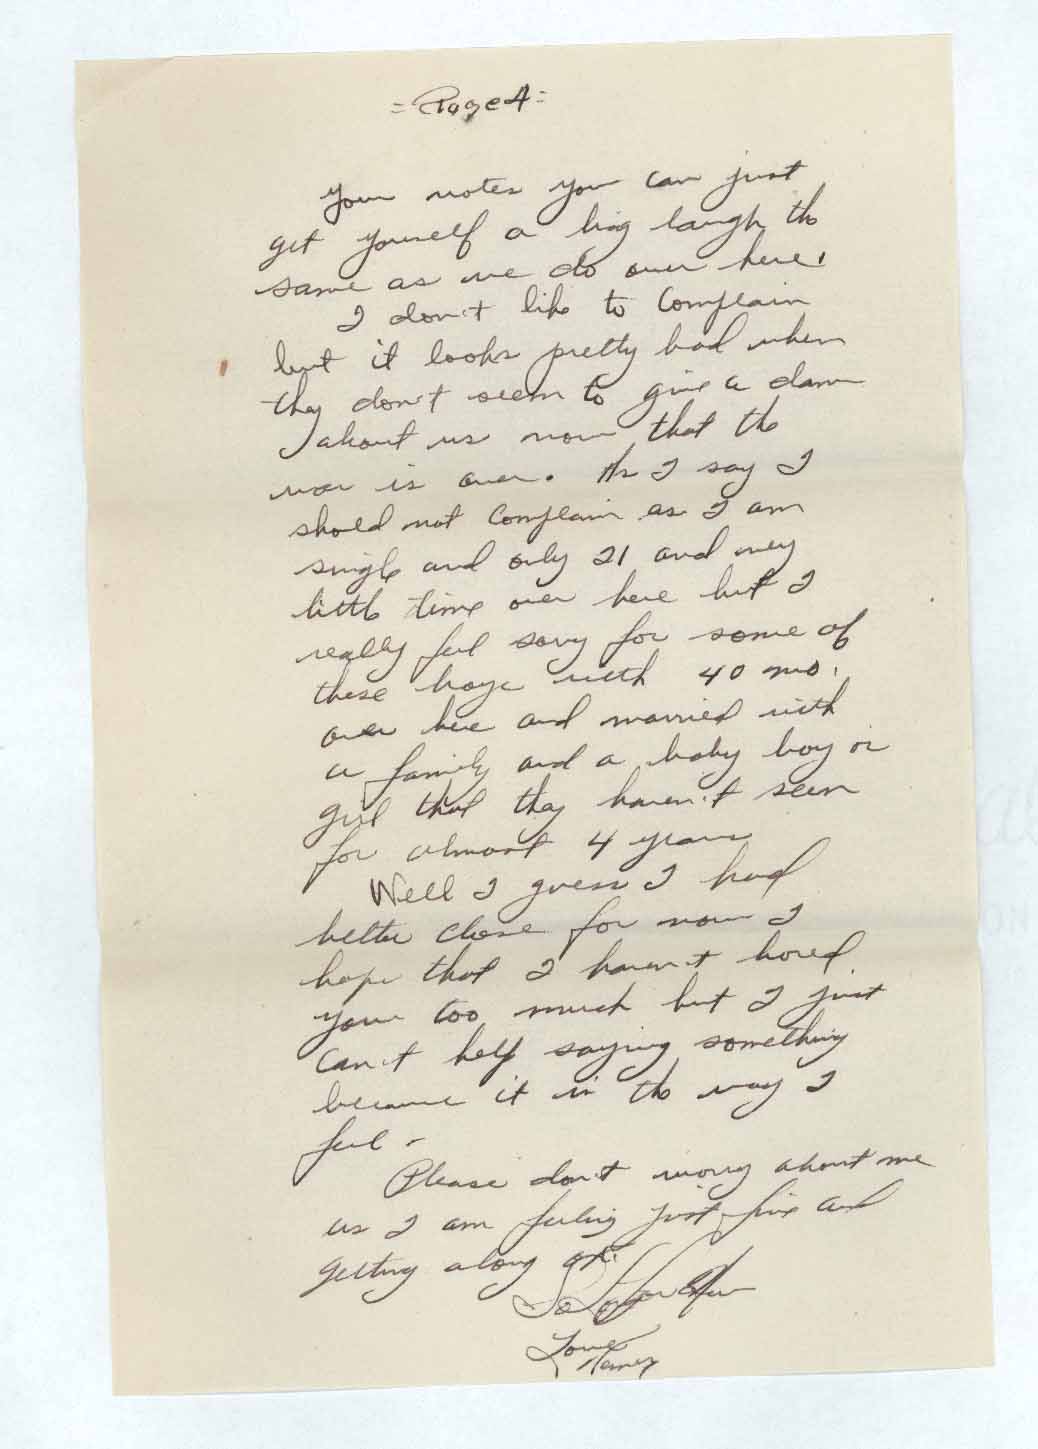 = Page 4 =
Your notes you can just
get youself a big laugh the
same as we do over here.
I don't like to complain
but it looks pretty bad when
they don't seem to give a damn
about us now that the
war is over. As I say I
should not complain as I am
single and only 21 and very
little time over here but I
really feel sorry for some of
these boys with 40 mo.
over here and married with
a family and a baby boy or
girl that they haven't seen
for almost 4 years
Well I guess I had
better close for now I
hope that I haven't bored
you too much but I just
can't help saying something
because it is the way I
feel -
Please don't worry about me
as I am feeling just fine and
getting along ok.
So Long For Now
Love